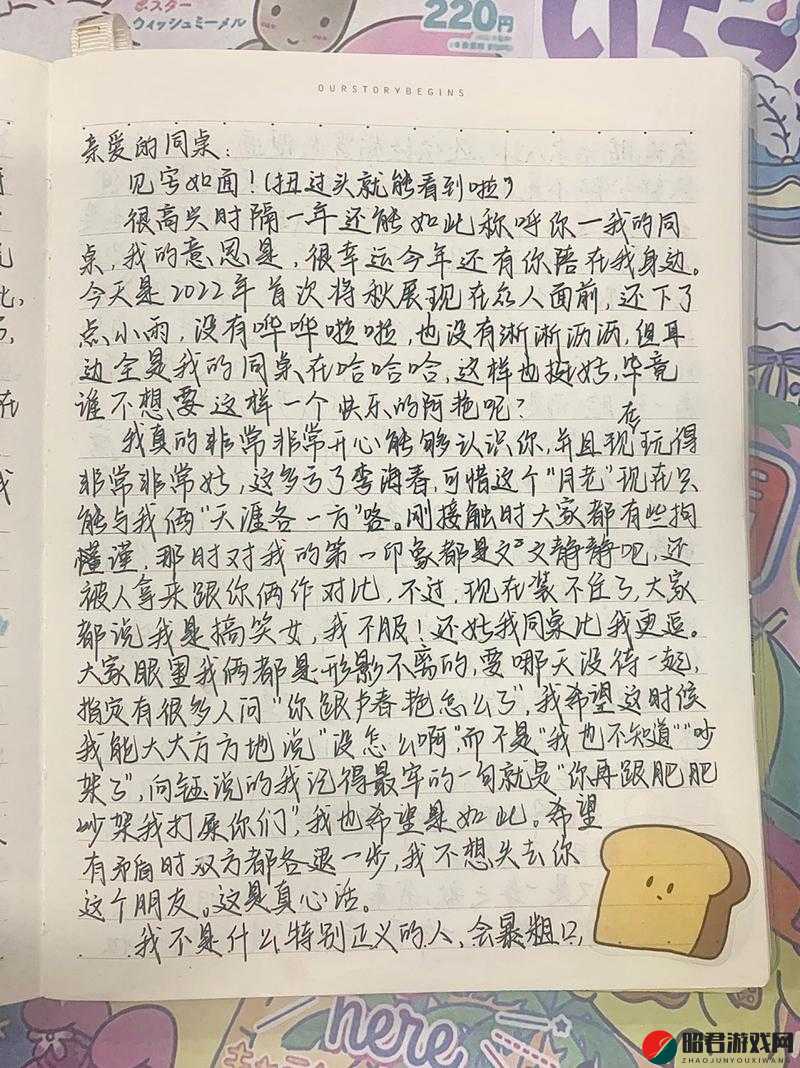 ポスター
ウィッシュミーメル
220円
OURSTORYBEGINS
亲爱的同桌:
见字如面!(扭过头就能看到啦)
很高兴时隔一年还能如此称呼你—我的同
桌,我的意思是,很幸运今年还有你陪在我身边。
今天是2022年首次将秋展现在众人面前,还下了
点小雨,没有哗哗啦啦,也没有淅淅沥沥,但耳
边全是我的同桌在哈哈哈,这样也挺好,毕竟
谁不想要这样一个快乐的阿艳呢?
我真的非常非常开心能够认识你,并且现在玩得
非常非常好,这多亏了李海春,可惜这个“月老”现在只
能与我俩“天涯各一方”咯。刚接触时大家都有些拘
谨,那时对我的第一印象都是文文静静吧,还
被人拿来跟你俩作对比,不过,现在装不住了,大家
都说我是搞笑女,我不服!还好我同桌比我更逗。
大家眼里我俩都是形影不离的,要哪天没待一起,
指定有很多人问“你跟卢春艳怎么了”,我希望这时候
我能大大方方地说“没怎么啊”,而不是“我也不知道”“吵
架了”,向钰说的我记得最牢的一句就是“你再跟肥肥
吵架我打屎你们”,我也希望是如此。希望
有矛盾时双方都各退一步,我不想失去你
这个朋友。这是真心话。
我不是什么特别正义的人,会暴粗口,
here
昭君游戏网
ZHAOJUNYOUXIWANG